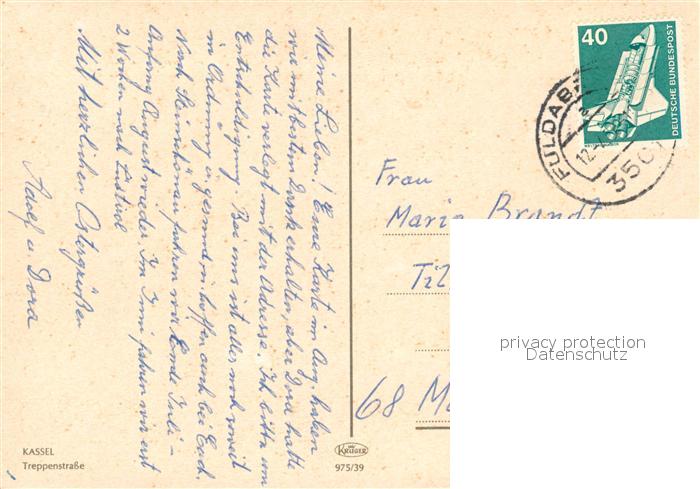 Meine Lieben! Eine Karte im Aug. haben
wir mit bestem Dank erhalten, aber Dora hatte
die Karte verlegt mit der Adresse. Ich bitte um
Entschuldigung. Bei uns ist alles noch soweit
in Ordnung u. gesund, n. hoffen auch bei Euch.
Nach fahren wir Ende Juli -
Anfang August wieder. Im Juni fahren wir erst
2 Wochen nach Osttirol
Mit herzlichen Ostergrüßen
Adolf u. Dora
KASSEL
Treppenstraße
KRÜGER
975/39
40
DEUTSCHE BUNDESPOST
FULDABR
12.-4.
3501
Frau
Maria Brandt
Til
68 M
privacy protection
Datenschutz